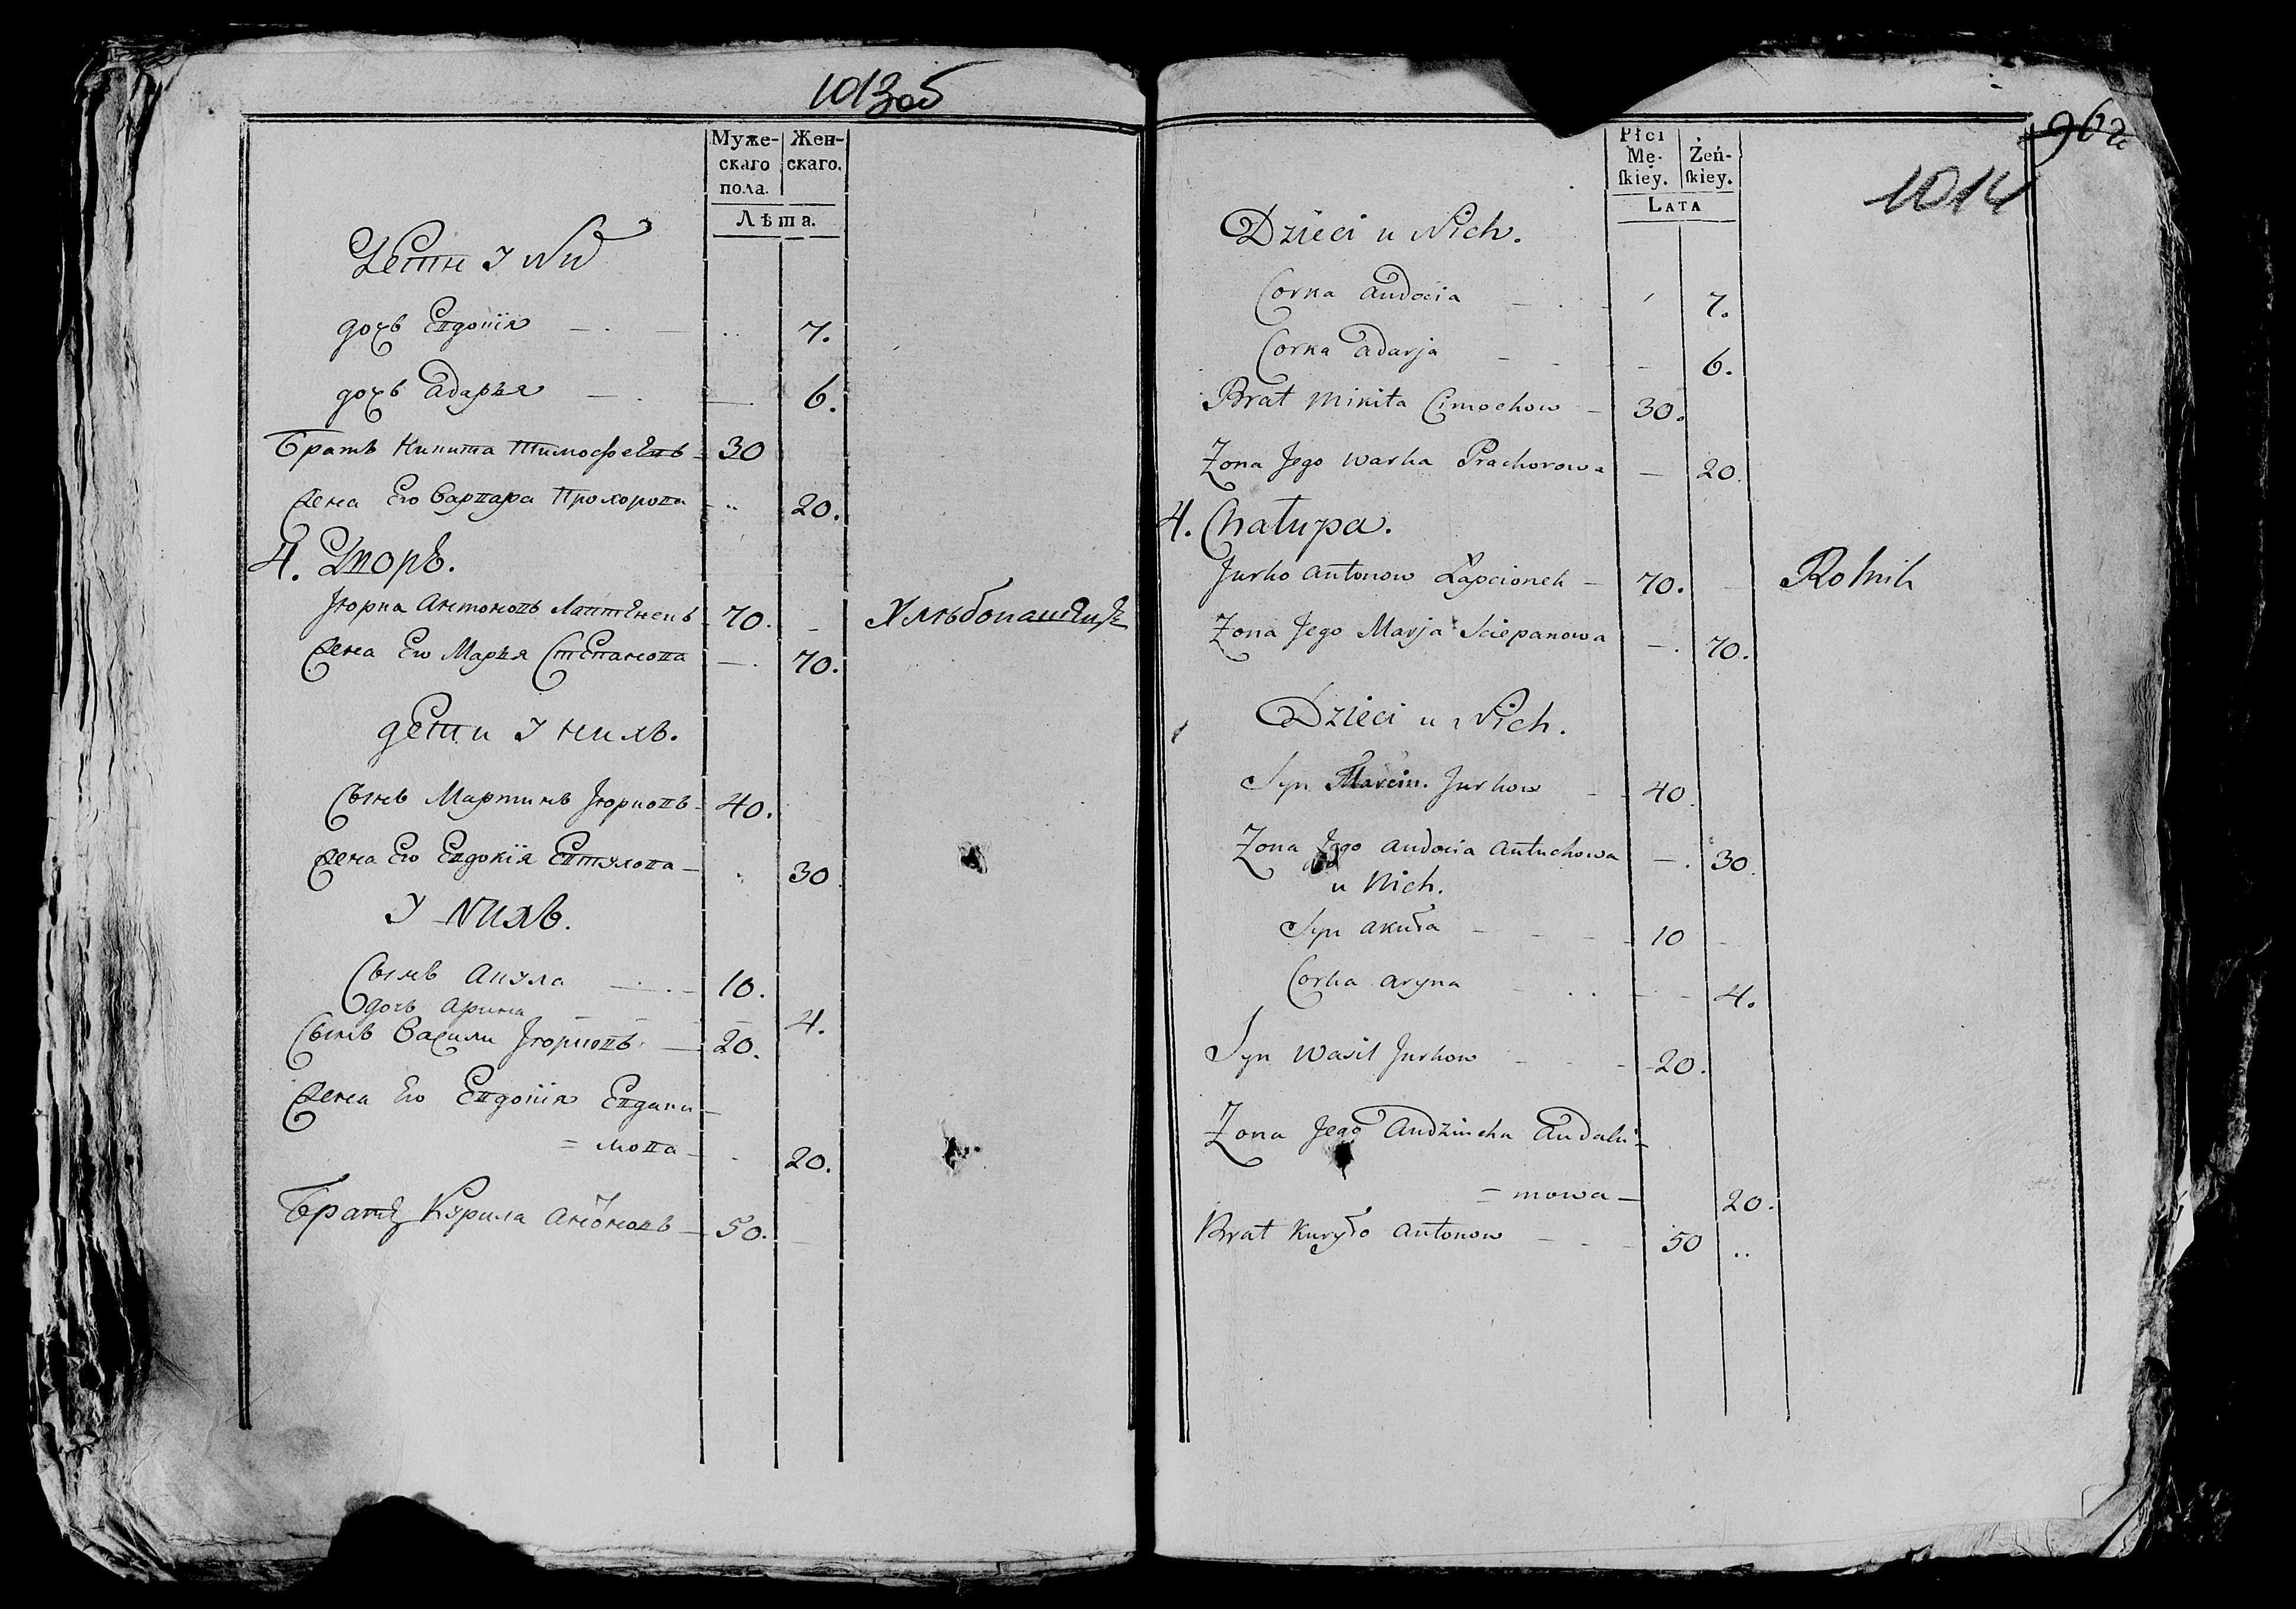 1013об
Муже-
скаго
пола.
Жен-
скаго.
Лѣта.
Дети У Них
дочь Евдокія 7.
дочь Адарья 6.
Братъ Никита Тимофеевъ 30
Жена Его Варвара Прохорова 20.
4. Дворъ.
Юрка Антоновъ Лаптенекъ 70. Хлѣбопашецъ
Жена Его Марья Степанова 70.
дети У нихъ.
Сынъ Мартинъ Юрковъ 40.
Жена Его Евдокія Евтухова 30
У Нихъ.
Сынъ Акула 10.
дочь Арина 4.
Сынъ Васили Юрковъ 20.
Жена Его Евдокія Евдаки-
= мова 20.
Братъ Курила Антоновъ 50.
962
1014
Płci
Mę-
ſkiey.
Żeń-
ſkiey.
LATA
Dzieci u Nich.
Corka Audocia 7.
Corka Adarja 6.
Brat Mikita Cimochow 30.
Zona Jego Warka Prachorowa 20.
4. Chałupa.
Jurko Antonow Łapcionek 70. Rolnik
Zona Jego Marja Sciepanowa 70.
Dzieci u Nich.
Syn Marcin Jurkow 40.
Zona Jego Audocia Autuchowa 30.
u Nich.
Syn Akuła 10
Corka Aryna 4.
Syn Wasil Jurkow 20.
Zona Jego Audziucha Audaki-
= mowa 20.
Brat Kuryło Antonow 50